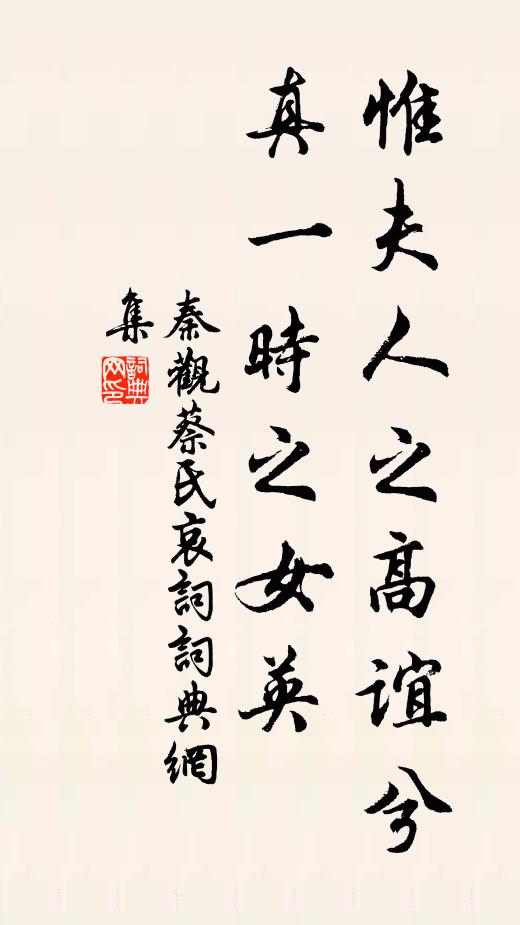 惟夫人之高誼兮
真一時之女英
秦觀蔡氏哀詞詞典網
集
詞典
网印